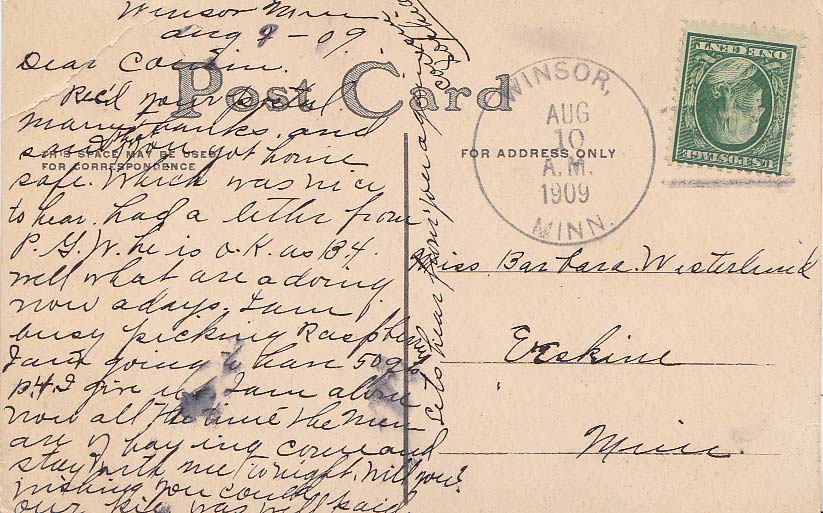 Winsor Minn
Aug 9-09
Dear Cousin.
Post Card
Rec'd your postal
many thanks. and
saw you got home
THIS SPACE MAY BE USED
FOR CORRESPONDENCE
safe. Which was nice
to hear. had a letter from
P.G.W. he is O.K. as B4.
well what are a doing
now adays. I am
busy picking Raspberry
I am going to have 50 qts
B.4. I give up I am alone
now all the time the men
are haying come and
stay with me to night. Will you?
wishing you could
our was well said
Lets hear from you again
WINSOR,
AUG
10
A.M.
1909
MINN.
ONE CENT
U.S. POSTAGE
FOR ADDRESS ONLY
Miss Barbara. Westerlund
Erskine
Minn.